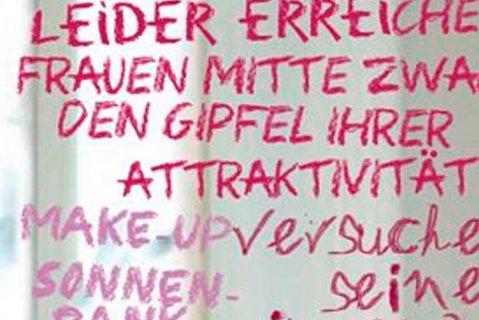 LEIDER ERREICHE
FRAUEN MITTE ZWA
DEN GIPFEL IHRER
ATTRAKTIVITÄT
MAKE-UP versuche
SONNEN- seine
BANK